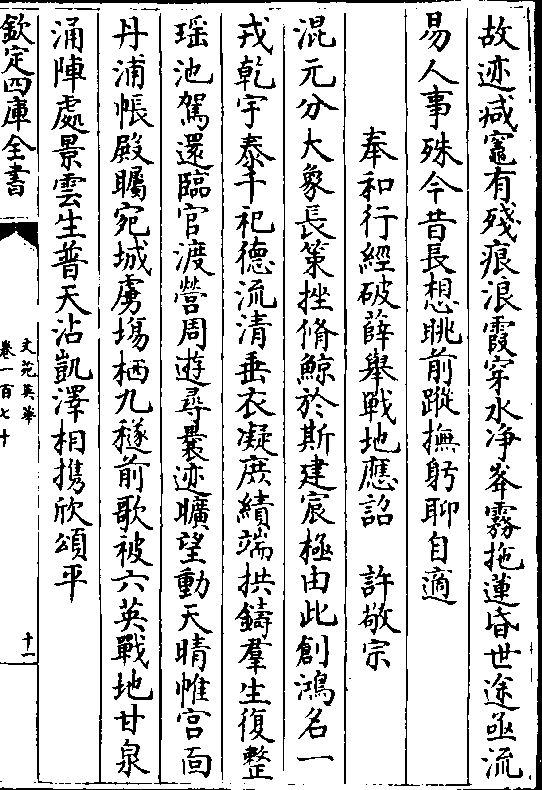 故迹咸竈有殘痕浪霞穿水净峯霧抱蓮昏世途亟流
易人事殊今昔長想眺前蹤撫躬聊自適
奉和行經破薛舉戰地應詔　許敬宗
混元分大象長策挫脩鯨於斯建宸極由此創鴻名一
戎乾宇泰千祀德流清垂衣凝庶績端拱鑄羣生復整
瑶池駕還臨官渡營周遊尋曩迹曠望動天晴帷宫面
丹浦帳殿矚宛城虜塲栖九穟前歌被六英戰地甘泉
涌陣處景雲生普天沾凱澤相携欣頌平
欽定四庫全書
文苑英華
卷一百七十
十一